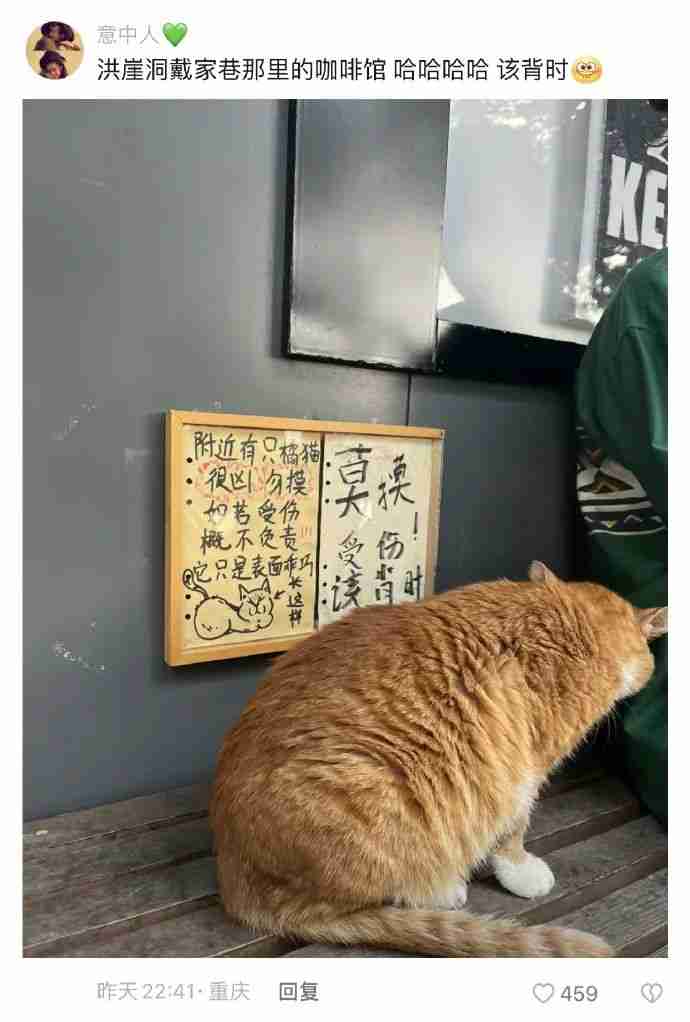 意中人💚
洪崖洞戴家巷那里的咖啡馆 哈哈哈哈 该背时
KE
附近有只橘猫
很凶 勿摸
如若受伤
概不负责
它只是表面乖巧
长这样
莫摸!
受伤
该背时
昨天22:41·重庆 回复
459